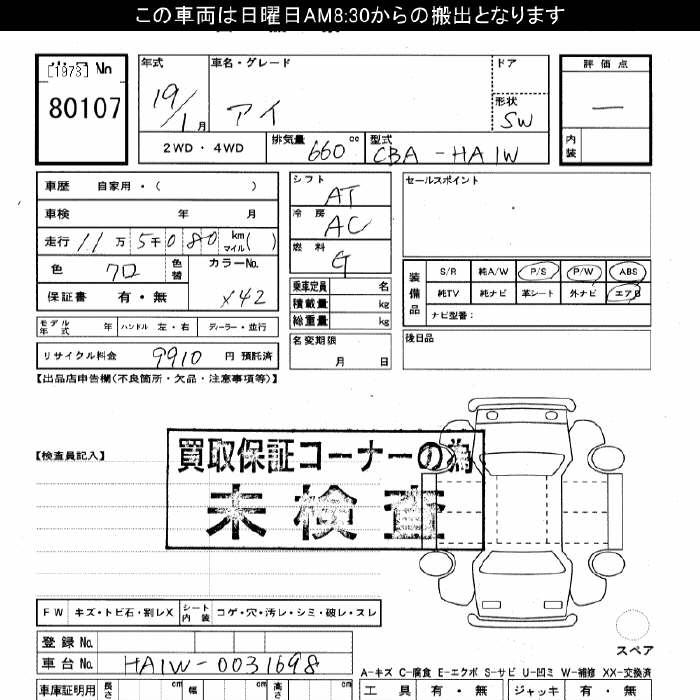 この車両は日曜日AM8:30からの搬出となります
[1973] No
80107
年式 19/1月
車名・グレード アイ
ドア
形状 SW
評価点 —
内装
2WD・4WD
排気量 660 cc
型式 CBA-HA1W
車歴 自家用・( )
車検 年 月
走行 11万5千080 km マイル( )
色 クロ 色替
カラーNo. X42
保証書 有・無
シフト AT
冷房 AC
燃料 G
乗車定員 名
積載量 kg
総重量 kg
名変期限 月 日
セールスポイント
装備品
S/R 純A/W P/S P/W ABS
純TV 純ナビ 革シート 外ナビ エアB
ナビ型番:
後日品
モデル年式 年 ハンドル 左・右 ディーラー・並行
リサイクル料金 9910 円 預託済
【出品店申告欄(不良箇所・欠品・注意事項等)】
【検査員記入】
買取保証コーナーの為
未検査
FW キズ・トビ石・割レX シート内装 コゲ・穴・汚レ・シミ・破レ・スレ
登録No.
車台No. HA1W-0031698
スペア
A-キズ C-腐食 E-エクボ S-サビ U-凹ミ W-補修 XX-交換済
車庫証明用 長さ cm 幅 cm 高さ cm
工具 有・無 ジャッキ 有・無